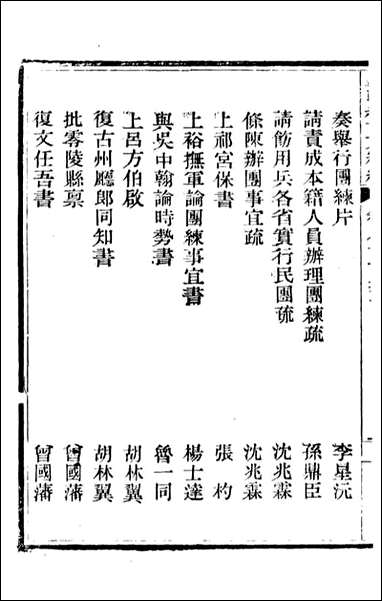 奏舉行團練片 李星沅
請責成本籍人員辦理團練疏 孫鼎臣
請飭用兵各省實行民團疏 沈兆霖
條陳辦團事宜疏 沈兆霖
上祁宮保書 張杓
上裕撫軍論團練事宜書 楊士達
與吳中翰論時勢書 魯一同
上呂方伯啟 胡林翼
復古州廳郎同知書 胡林翼
批零陵縣稟 曾國藩
復文任吾書 曾國藩